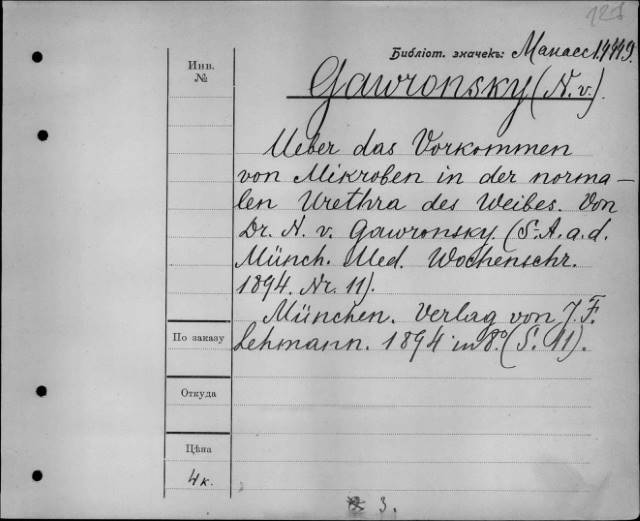 121
Библіот. значекъ: Манасс1.4449.
Инв.
№
Gawronsky (N. v.).
Ueber das Vorkommen
von Mikroben in der norma-
len Urethra des Weibes. Von
Dr. N. v. Gawronsky. (S.-A. a. d.
Münch. Med. Wochenschr.
1894. Nr. 11).
München. Verlag von J. F.
Lehmann. 1894 in 8º. (S. 11).
По заказу
Откуда
Цѣна
4 к.
3.